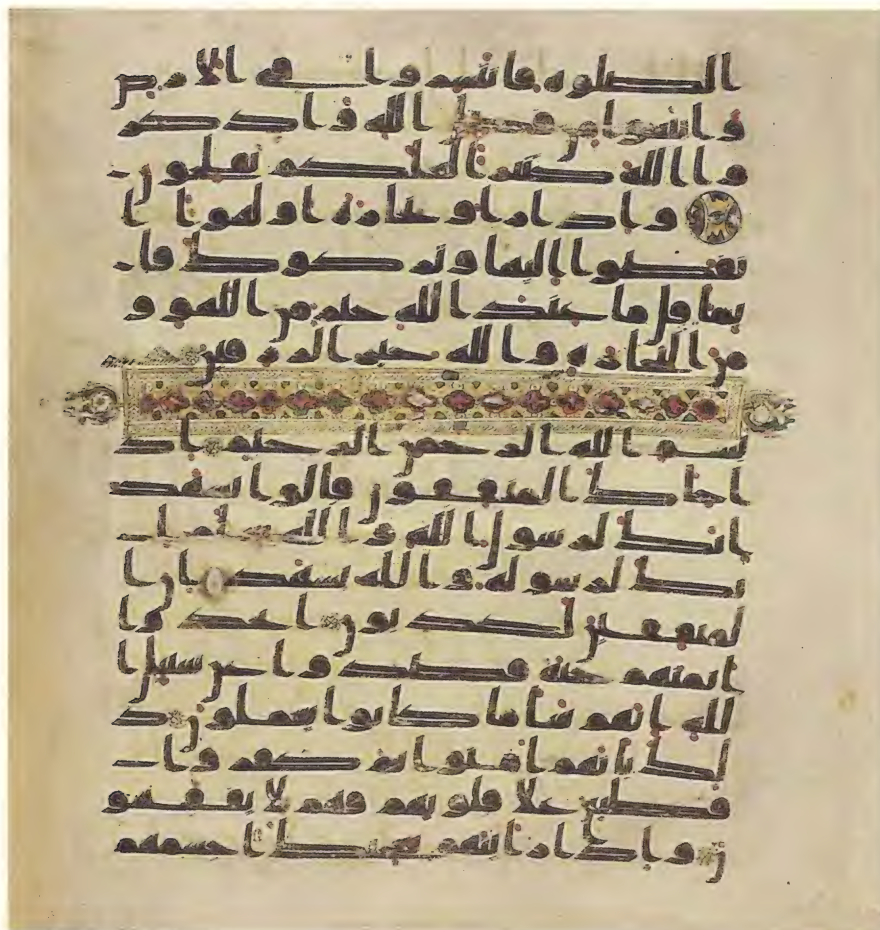 الصلوه فانتشروا في الارض
وابتغوا من فضل الله واذكر
وا الله كثيرا لعلكم تفلحون
واذا راوا تجاره او لهوا ا
نفضوا اليها وتركوك قا
يما قل ما عند الله خير من اللهو و
من التجاره والله خير الرزقين
بسم الله الرحمن الرحيم اذ
ا جاك المنفقون قالوا نشهد
انك لرسول الله والله يعلم ا
نك لرسوله والله يشهد ان ا
لمنفقين لكذبون اتخذوا
ايمنهم جنه فصدوا عن سبيل ا
لله انهم سا ما كانوا يعملون ذ
لك بانهم امنوا ثم كفروا
فطبع على قلوبهم فهم لا يفقهو
ن واذا رايتهم تعجبك اجسمهم